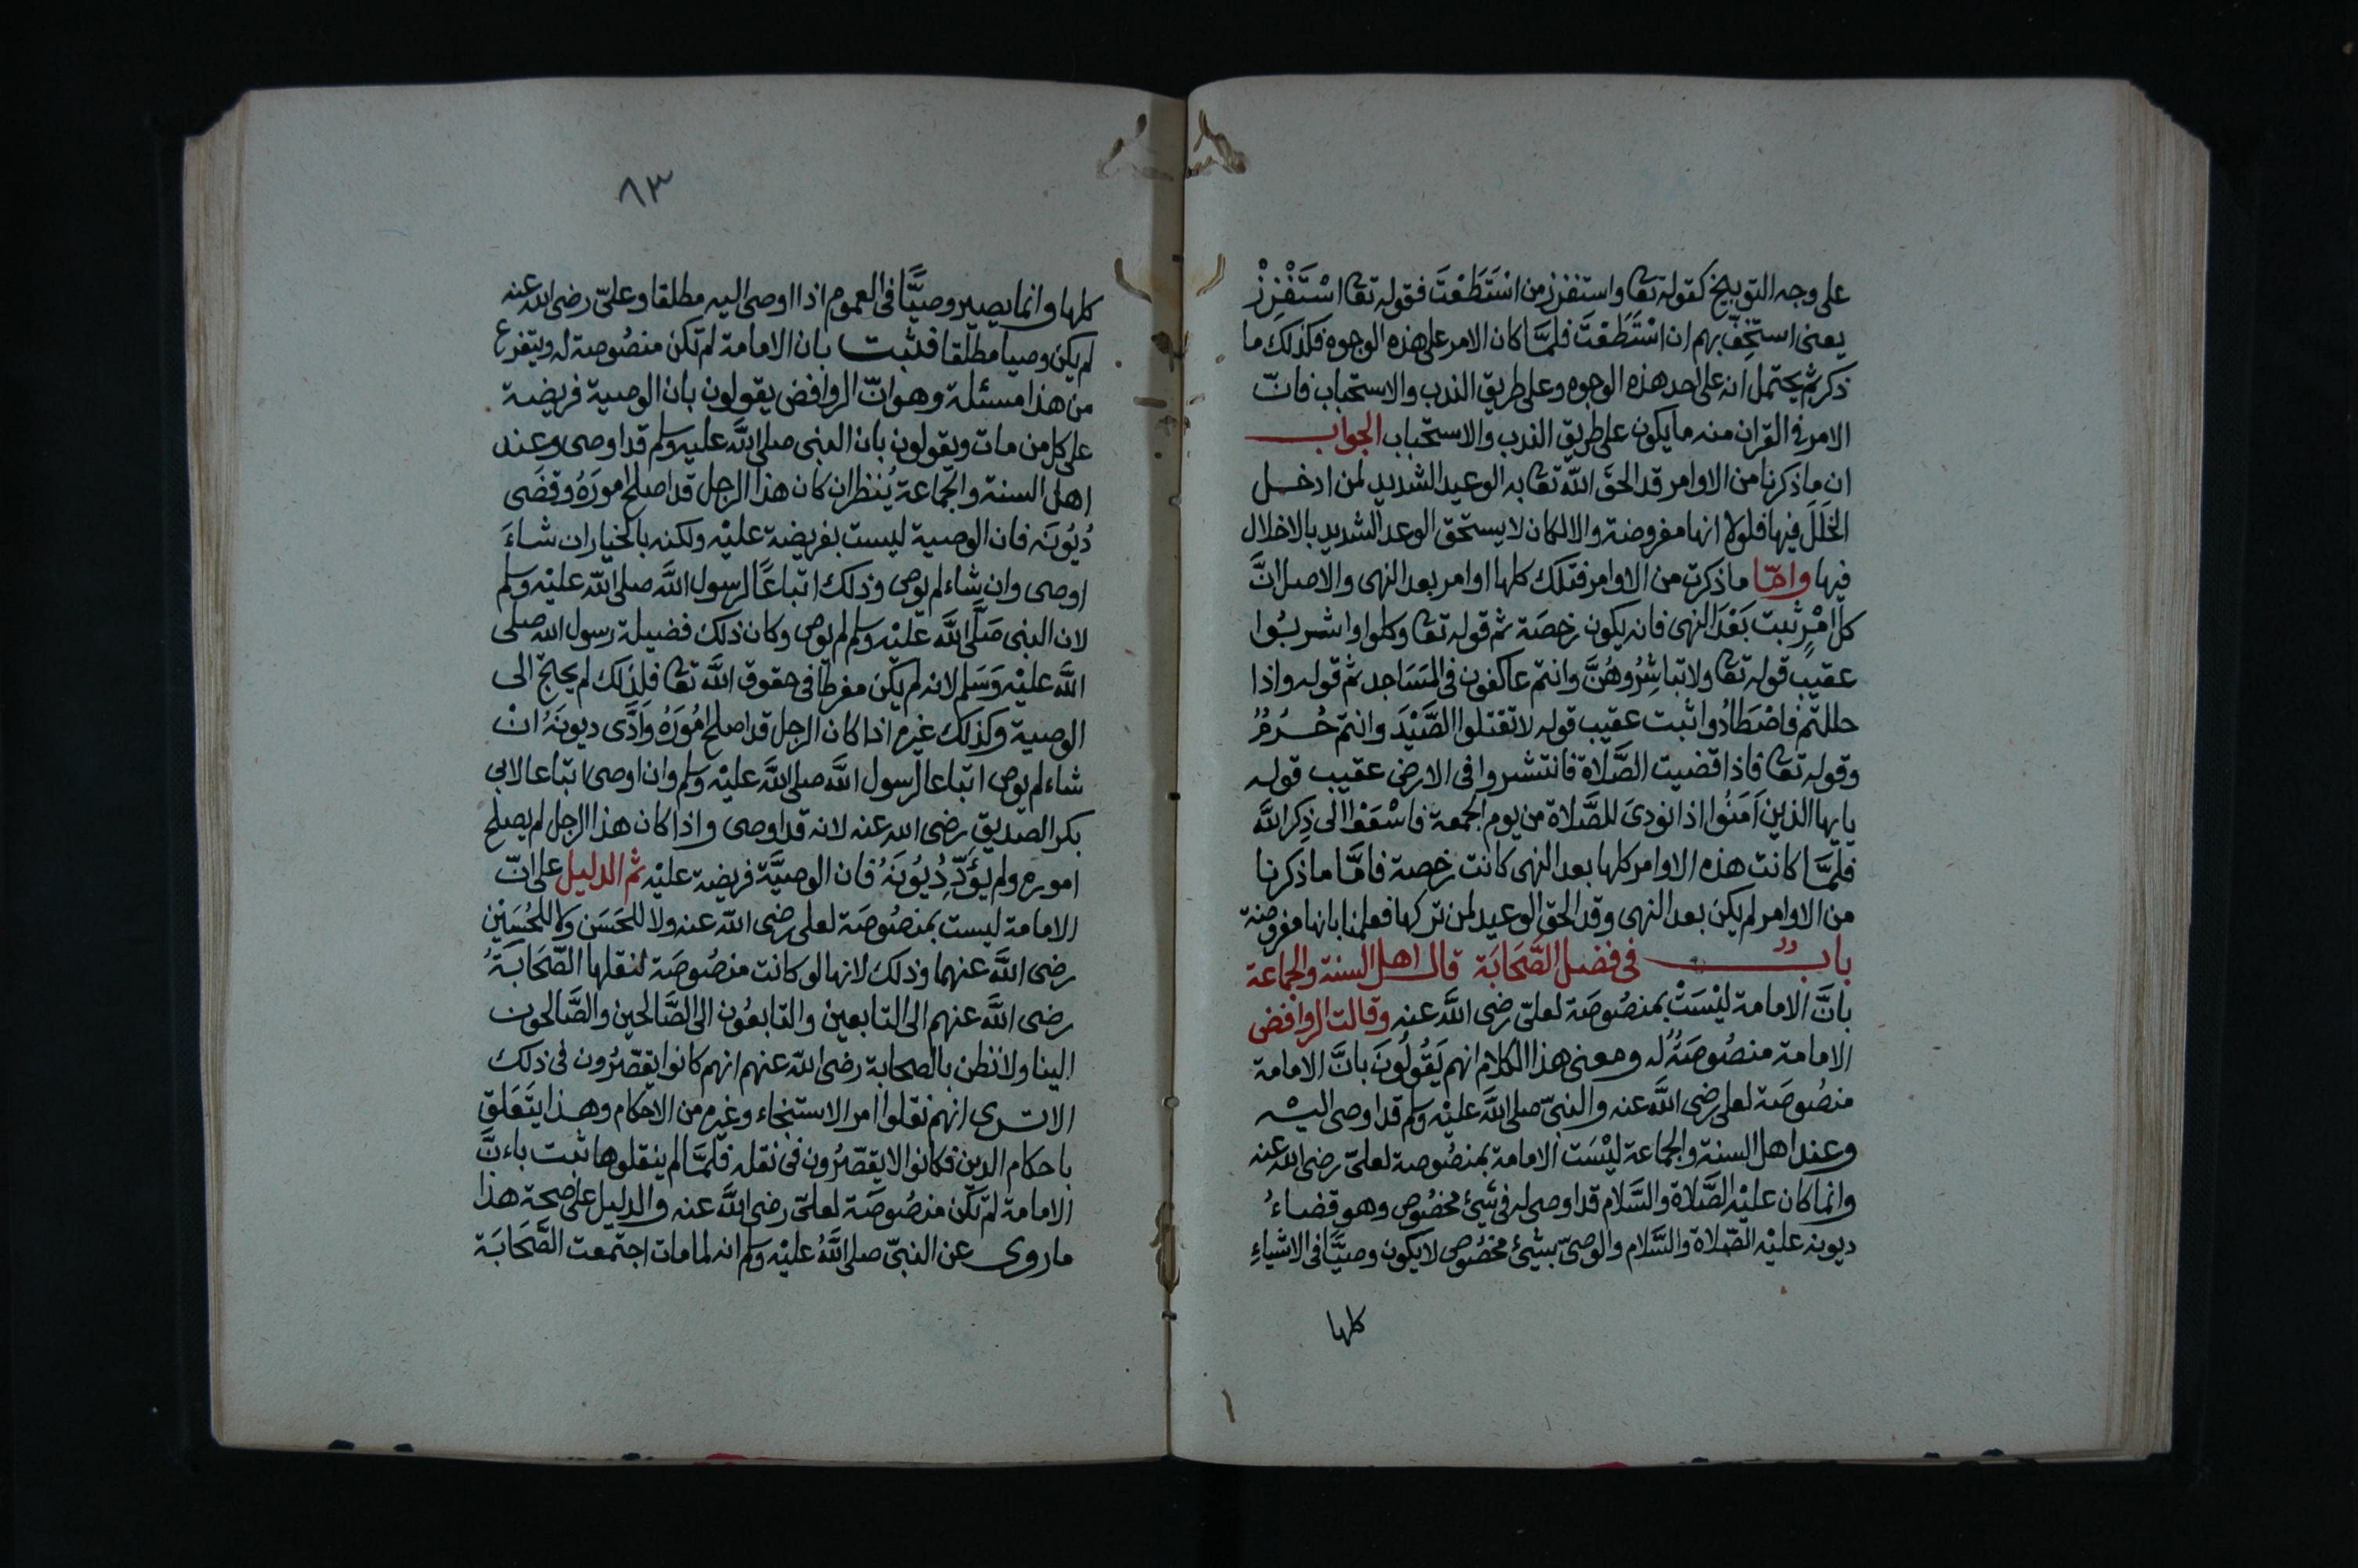 على وجه التوبيخ كقوله تعا واستفزز من اسْتَطَعْتَ فقوله تعا اسْتَفْزِزْ
يعنى استخِفّ بهم ان اسْتَطَعْتَ فلمَّا كان الامر على هذه الوجوه فكذلك ما
ذكرتم يحتمل انه على احد هذه الوجوه وعلى طريق الندب والاستحباب فانّ
الامر فى القران منه ما يكون على طريق الندب والاستحباب الجواب
ان ما ذكرنا من الاوامر قد الحقَ الله تعا به الوعيد الشديد لمن ادخل
الخَلَلَ فيها فلولا انها مفروضة والا لكان لا يستحق الوعد الشديد بالاخلال
فيها وامّا ما ذكرت من الاوامر فتلك كلها اوامر بعد النهى والاصل انَّ
كل امْرٍ ثبت بَعْدَ النهى فانه يكون رخصَة ثم قوله تعا وكلوا واشربُوا
عقيب قوله تعا ولا تباشِرُوهُنَّ وانتم عاكفون فى المَسَاجد ثم قوله واذا
حللتم فاصْطَادُوا ثبت عقيب قوله لا تقتلوا الصَّيْدَ وانتم حُرُمٌ
وقوله تعا فاذا قضيت الصَّلاة فانتشروا فى الارض عقيب قوله
يايها الذين آمَنُوا اذا نودىَ للصَّلاة من يوم الجمعة فاسْعَوْا الى ذِكر اللَّه
فلمَّا كانت هذه الاوامر كلها بعد النهى كانت رخصة فامَّا ما ذكرنا
من الاوامر لم يكن بعد النهى وقد الحق الوعيد لمن تركها فعلمنا بانها مفروضة
بابٌ فى فضل الصَّحَابَة قال اهل السنة والجماعة
بانَّ الامامة ليْسَتْ بمنصُوصَة لعلىّ رضى اللَّه عنه وقالت الروافض
الامامة منصُوصَةٌ له ومعنى هذا الكلام انهم يَقُولُونَ بانَّ الامامة
منصُوصَة لعلى رضى اللَّه عنه والنبىّ صلى اللَّه عليْه وسلم قد اوصى اليْه
وعند اهل السنة والجماعة ليْسَت الامامة بمنصُوصة لعلىّ رضى الله عنه
وانما كان عليْه الصَّلاة والسَّلام قد اوصى له فى شئ مخصُوص وهو قضاءُ
ديونه عليْه الصَّلاة والسَّلام والوصىّ بشئ مخصُوص لا يكون وصيًّا فى الاشياءِ
كلها
٨٣
كلها وانما يصير وصيًّا فى العموم اذا اوصى اليه مطلقا وعلىّ رضى الله عنه
لم يكن وصيا مطلقا فثبت بان الامامة لم تكن منصُوصة له ويتفرع
من هذا مسئلة وهو انّ الروافض يقولون بان الوصية فريضة
على كل من مات ويقولون بان النبى صلى اللَّه عليه وسلم قد اوصى وعند
اهل السنة والجماعة يُنظر ان كان هذا الرجل قد اصلح امورَهُ وقضَى
دُيُونَه فان الوصية ليست بفريضة عليْه ولكنه بالخيار ان شاءَ
اوصى وان شاء لم يوص وذلك اتباعًا لرسول اللَّه صلى اللّه عليْه وسلم
لان النبى صَلَّى اللَّه عَليْه وسلم لم يوص وكان ذلك فضيلة رسول الله صلى
اللَّه عليْه وَسَلم لانه لم يكن مفرطا فى حقوق اللَّه تعا فلِذَلك لم يحتج الى
الوصية وكذلك غيره اذا كان الرجل قد اصلح امُورَهُ وَادَّى ديونَهُ انْ
شاء لم يوص اتباعا لرسول اللَّه صلى اللَّه عليْه وسلم وان اوصى اتباعا لابى
بكر الصّديق رضى الله عنه لانه قد اوصى واذا كان هذا الرجل لم يصلح
اموره ولم يؤدِّ دُيُونَهُ فان الوصيَّة فريضة عليْه ثم الدليل على انّ
الامامة ليست بمنصُوصَة لعلى رضى اللّه عنه ولا للحَسَن ولا للحُسَيْن
رضى اللَّه عنهما وذلك لانها لو كانت منصُوصَة لنقلها الصَّحَابَةُ
رضى اللَّه عنهم الى التابعين والتابعُون الى الصَّالحين والصَّالحون
الينا ولا نظن بالصحابة رضى اللّه عنهم انهم كانوا يقصّرُون فى ذلك
الا ترى انهم نقلوا امر الاستنجاء وغيره من الاحكام وهذا يتَعَلق
باحكام الدين فكانوا لا يقصّرُون فى نقله فلمَّا لم ينقلوها ثبت باءنَّ
الامامة لم تكن منصُوصَة لعلىّ رضى اللَّه عنه والدليل على صحة هذا
ما روى عن النبىّ صلى اللَّهُ عليْه وسلم انه لما مات اجتمعت الصَّحَابَة